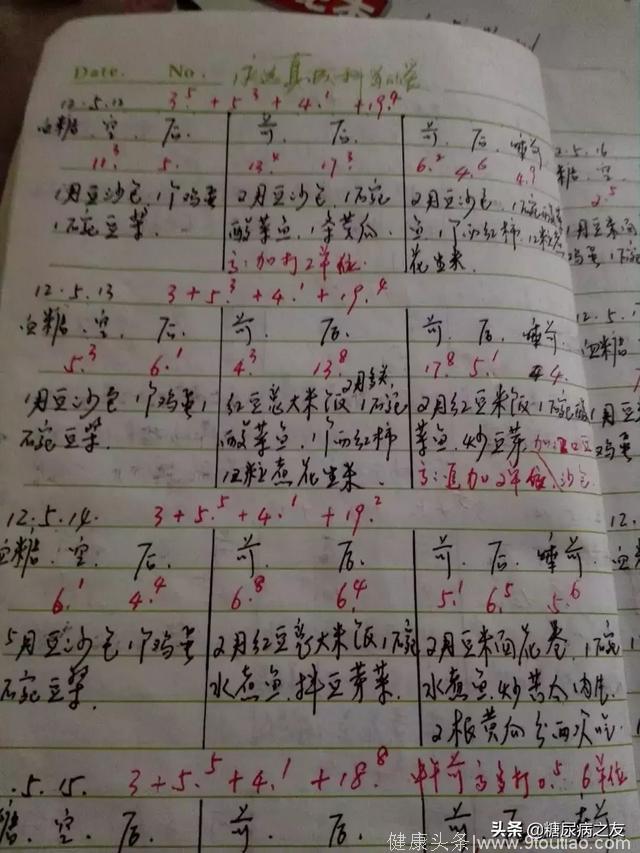 Date. No.
12.5.12 3.5+5.3+4.1+19.4
血糖. 空. 后. 前. 后. 前. 后. 睡前
11.3 5. 13.4 17.3 6.2 4.6 4.9
1月豆沙包.1个鸡蛋 2月豆沙包.1碗 2月豆沙包.1碗酸菜
1碗豆浆. 酸菜鱼.1条黄瓜. 鱼.1个西红柿.12粒煮
高:加打2单位. 花生米.
12.5.13 3+5.3+4.1+19.4
血糖. 空. 后. 前. 后. 前. 后. 睡前
5.3 6.1 4.3 13.8 17.8 5.1 4.4
1月豆沙包 1个鸡蛋1 红豆薏大米饭1碗 2月红豆米饭1碗酸
碗豆浆. 酸菜鱼.1个西红柿 菜鱼.炒豆芽
12粒煮花生米 高:追加2单位.沙包
12.5.14. 3+5.5+4.1+19.2
血糖. 空. 后. 前. 后. 前. 后. 睡前.
6.1 4.4 6.8 6.4 5.1 6.5 5.6
5月豆沙包1个鸡蛋 2月红豆薏大米饭1碗 2月豆米面花卷.1碗
1碗豆浆. 水煮鱼.拌豆芽菜. 水煮鱼.炒苦瓜肉片.
2根黄瓜分两次吃.
.5.15. 3+5.5+4.1+18.8 中午前高多打0.5 6单位
糖. 空. 后. 前. 后. 前. 后.
2.5.16
糖. 空
2.5
1月豆米面
鸡蛋.1碗
12.5.1
血糖
1月豆
鸡蛋
12.
头条 @糖尿病之友
健康头条 www.9toutiao.com